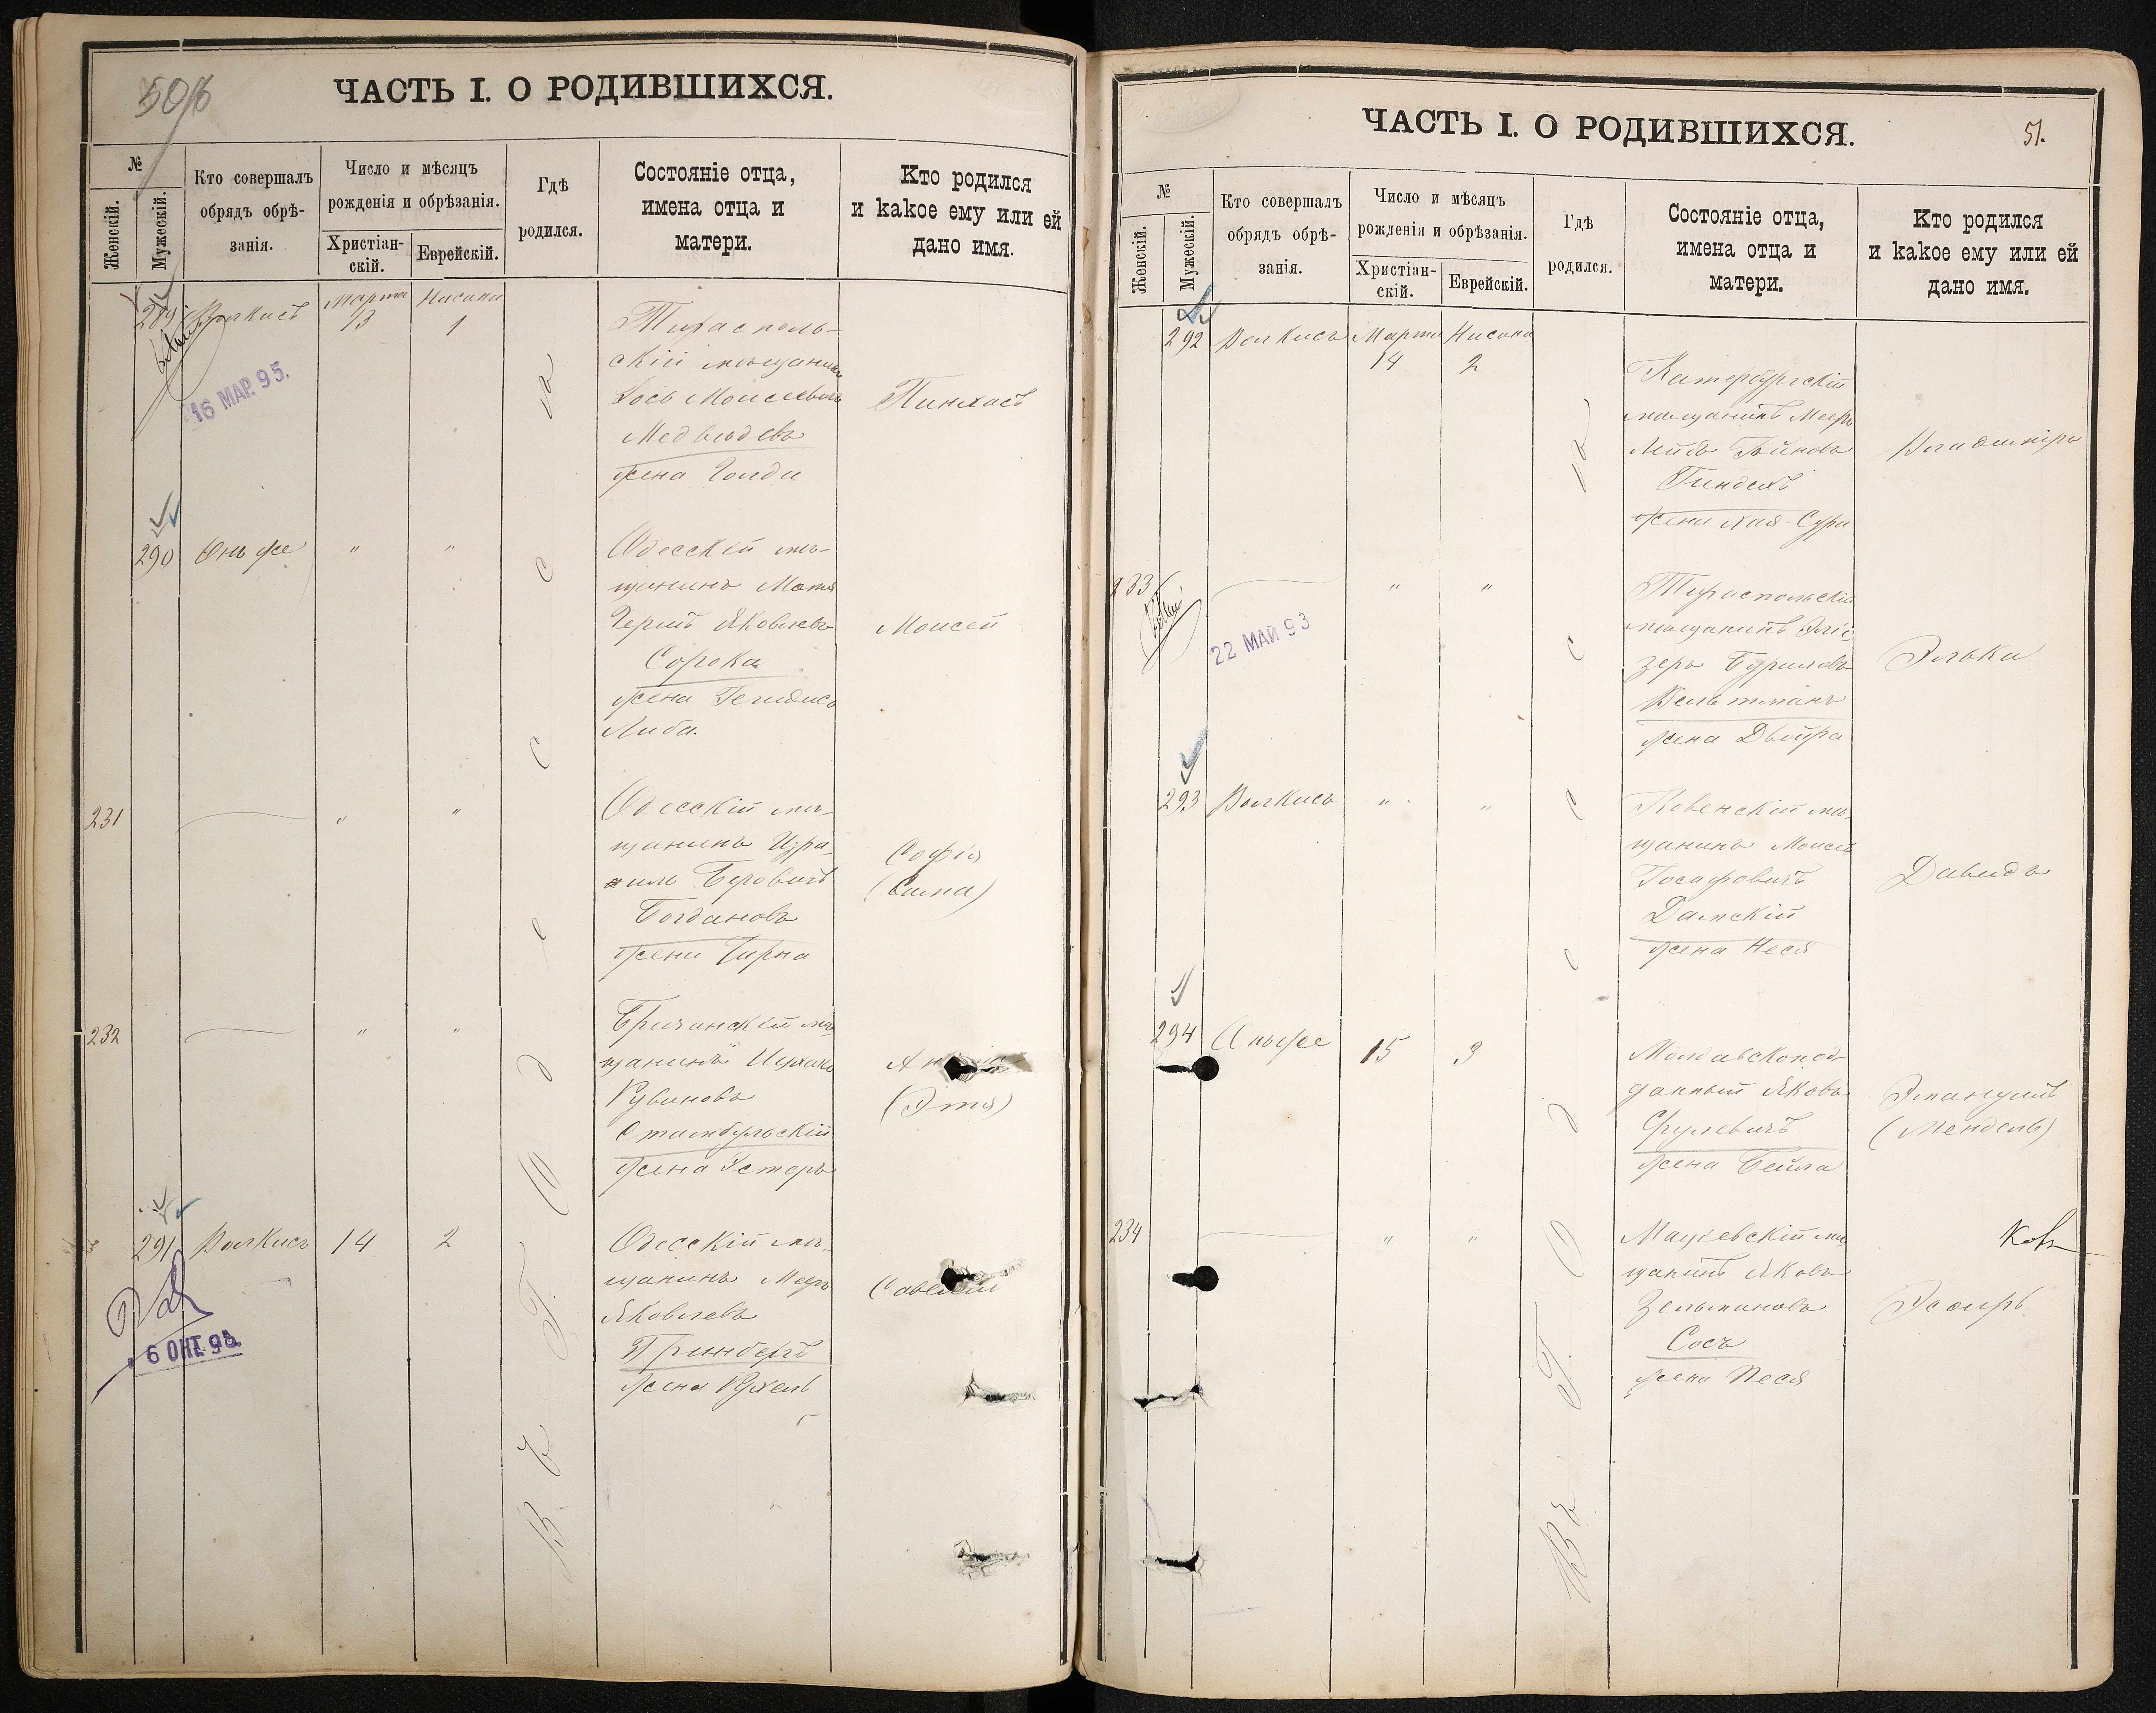 50/б
ЧАСТЬ I. О РОДИВШИХСЯ.
№
Женскій.
Мужескій.
Кто совершалъ
обрядъ обрѣ-
занія.
Число и мѣсяцъ
рожденія и обрѣзанія.
Христіан-
скій.
Еврейскій.
Гдѣ
родился.
Состояніе отца,
имена отца и
матери.
Кто родился
и какое ему или ей
дано имя.
289 Волкисъ Марта 13 Нисана 1
16 МАР. 95.
Тирасполь-
скій мѣщанинъ
Іось Моисеевичъ
Медвѣдевъ
жена Голда
Пинхасъ
290 Онъ же " "
Одесскій мѣ-
щанинъ
Яковлевъ
Сорока
жена
Либа.
Моисей
231 " "
Одесскій мѣ-
щанинъ Изра-
иль Беровичъ
Богдановъ
жена
Софія
232 " "
Бричанскій мѣ-
щанинъ Ицхикъ
Рувиновъ
Стамбульскій
жена Эстеръ
(Этя)
291 Волкисъ 14 2
6 ОКТ. 98.
Одесскій мѣ-
щанинъ Меръ
Яковлевъ
Гринбергъ
жена Рухель
Савелій
Въ Г. Одессѣ
ЧАСТЬ I. О РОДИВШИХСЯ.
51.
№
Женскій.
Мужескій.
Кто совершалъ
обрядъ обрѣ-
занія.
Число и мѣсяцъ
рожденія и обрѣзанія.
Христіан-
скій.
Еврейскій.
Гдѣ
родился.
Состояніе отца,
имена отца и
матери.
Кто родился
и какое ему или ей
дано имя.
292 Волкисъ Марта 14 Нисана 2
Катербургскій
мѣщанинъ Мееръ
Лейбъ
жена Хая-Сура
Владиміръ
233 " "
22 МАЙ 93
Тираспольскій
мѣщанинъ Эліе-
зеръ
Вельтманъ
жена Двойра
Элька
293 Волкисъ " "
Ковенскій мѣ-
щанинъ Моисей
Іосифовичъ
Дамскій
жена Неся
Давидъ
294 Онъ же 15 3
Молдавскопод-
данный Яковъ
жена Бейла
Эмануилъ
(Мендель)
234 " "
Маціевскій мѣ-
щанинъ Яковъ
Зельмановъ
Сосъ
жена Песя
Эсѳиръ
Въ Г. Одессѣ